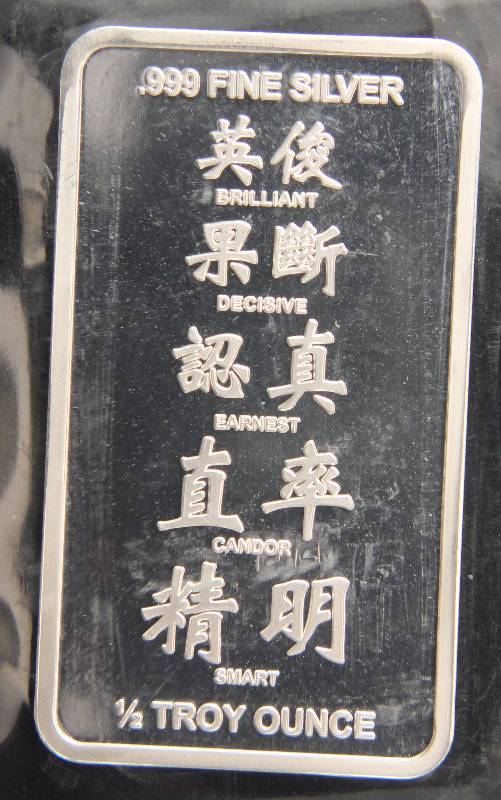 .999 FINE SILVER
英俊
BRILLIANT
果斷
DECISIVE
認真
EARNEST
直率
CANDOR
精明
SMART
½ TROY OUNCE